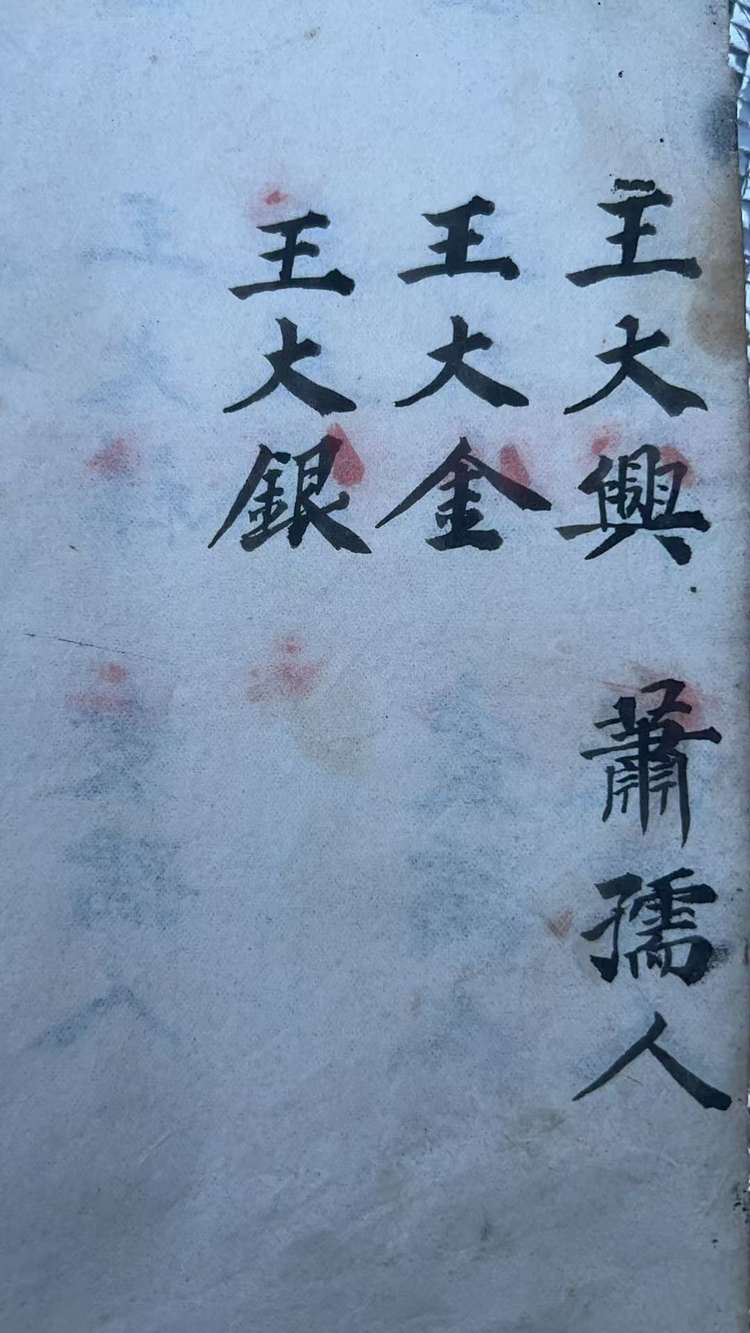 主大興 蕭孺人
王大金
王大銀